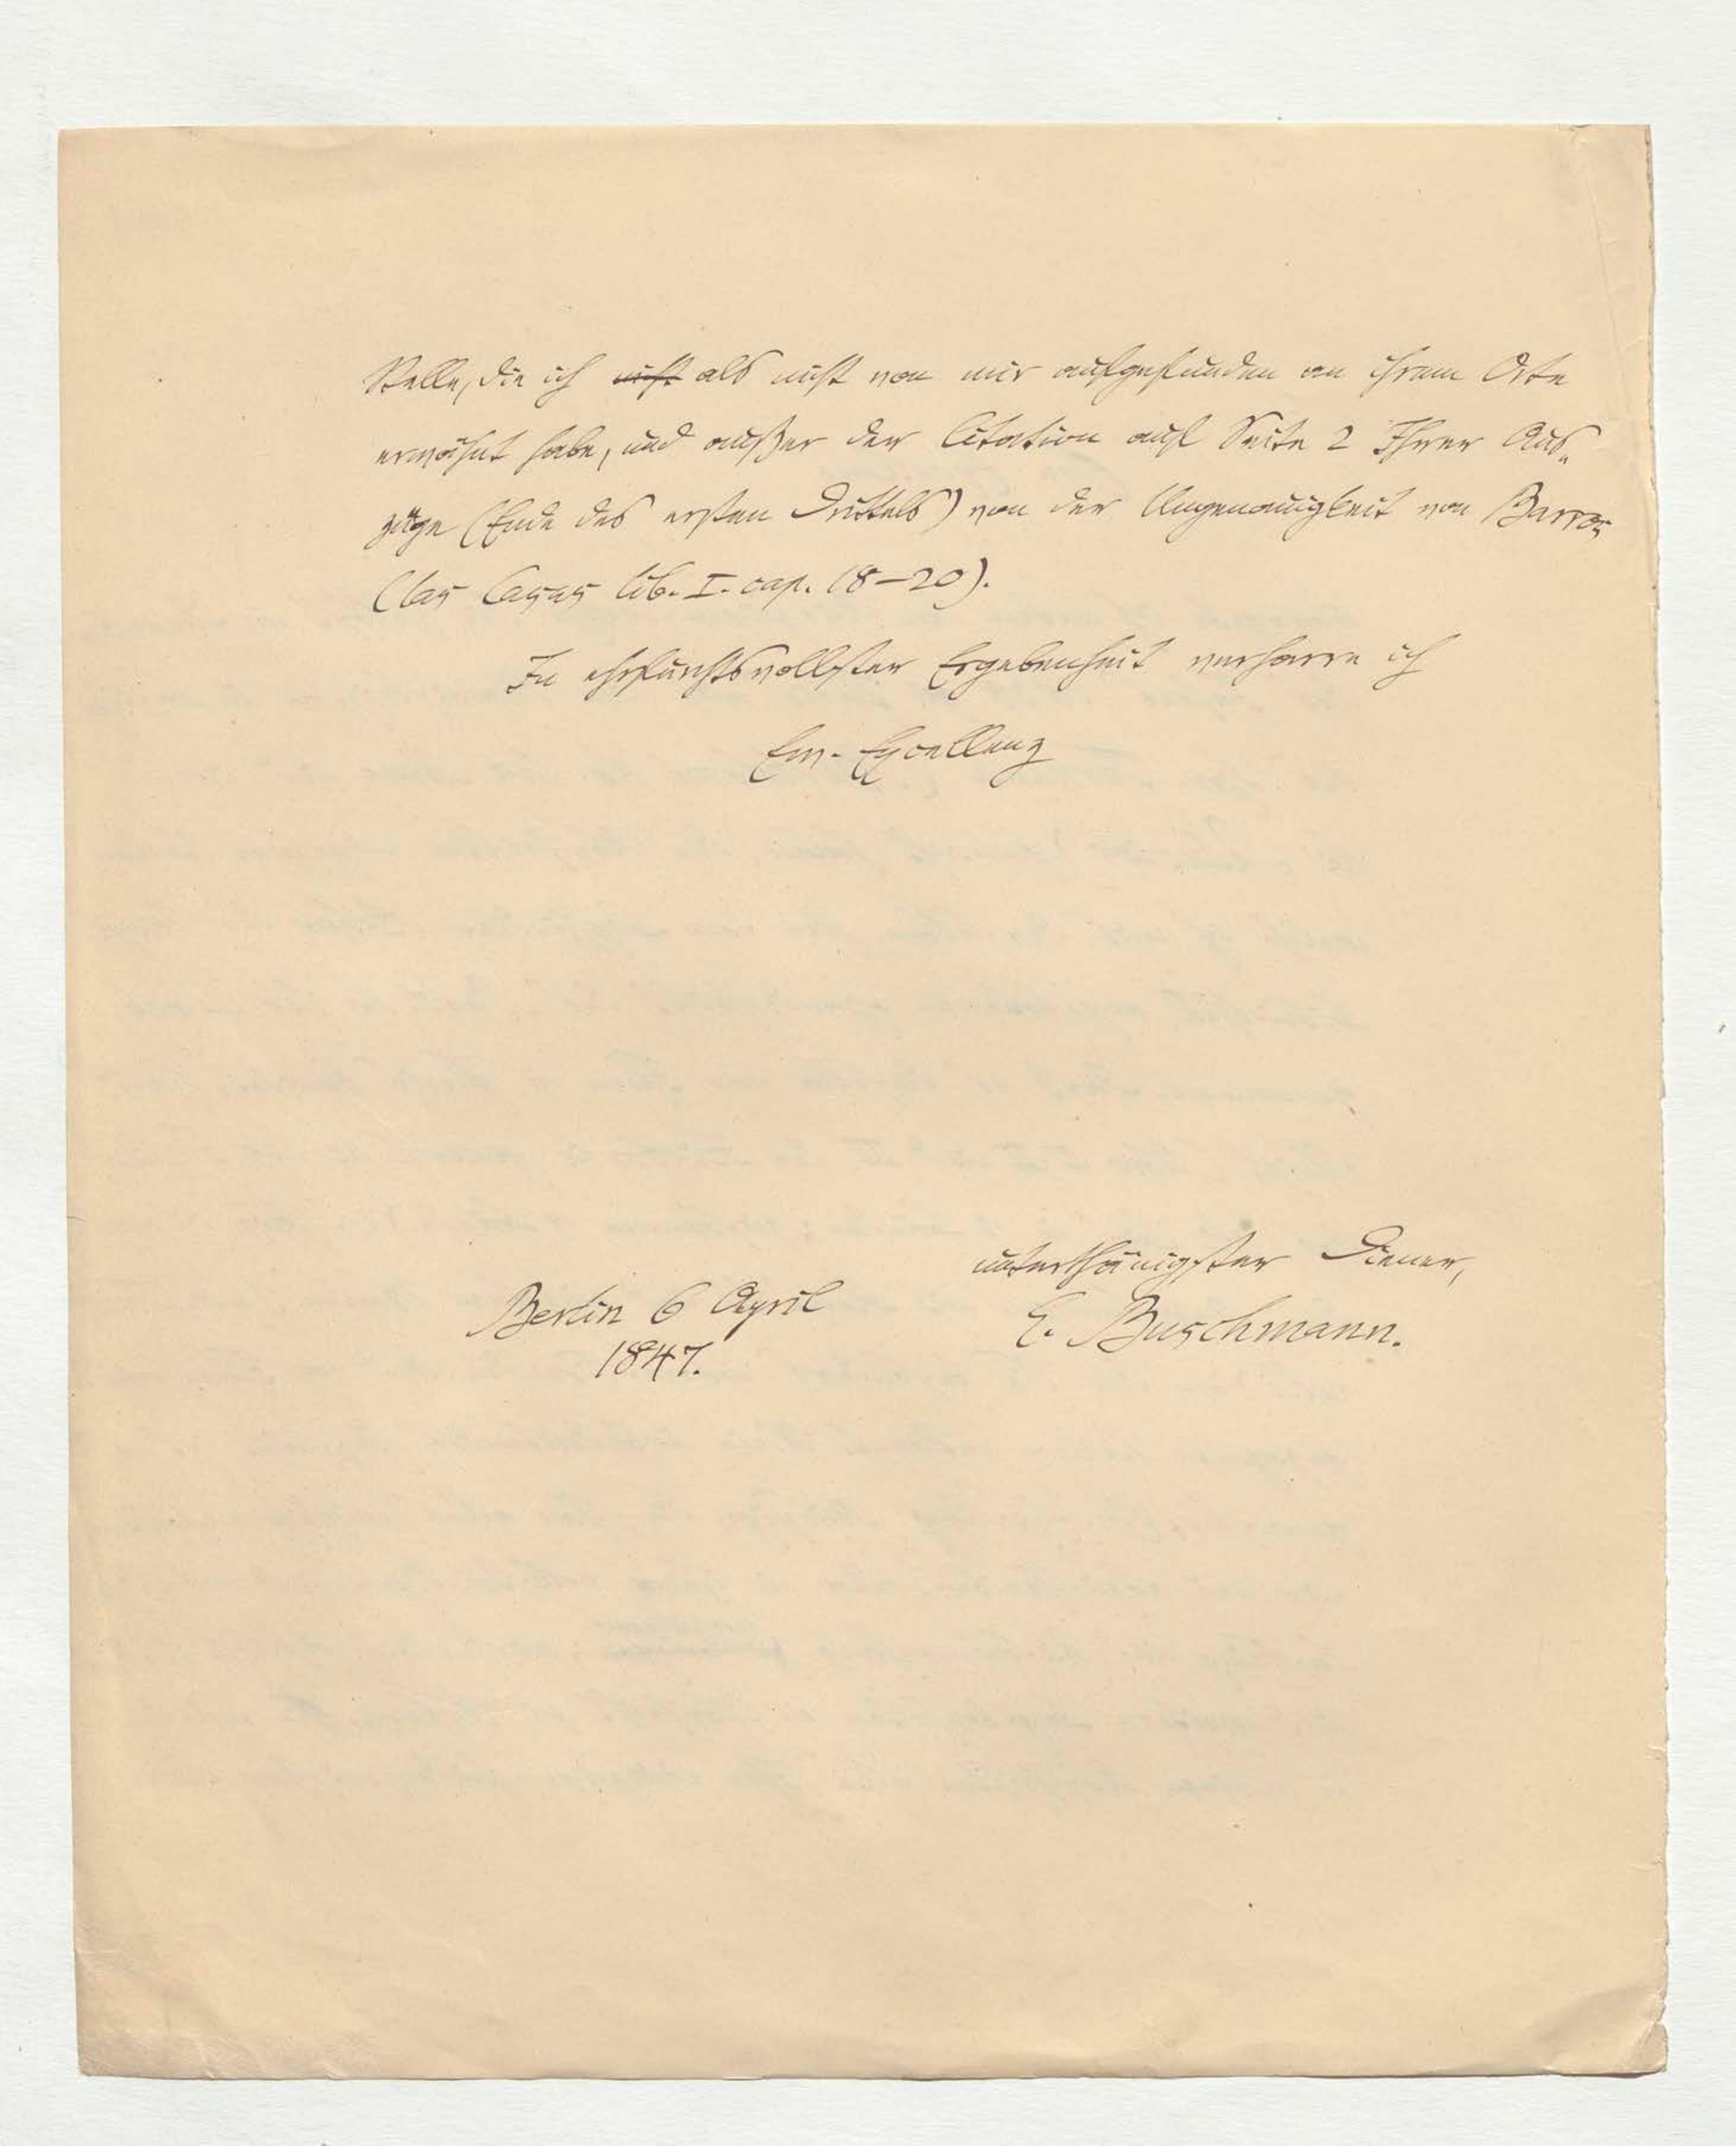 Stelle, die ich nicht als nicht von mir aufgefunden an ihrem Orte
erwähnt habe, und außer der Citation auf Seite 2 Ihrer Aus-
züge (Ende des ersten Drittels) von der Ungenauigkeit von Barros
(las Casas lib. I. cap. 18–20).
In ehrfurchtsvollster Ergebenheit verharre ich
Ew. Excellenz
unterthänigster Diener,
E. Buschmann.
Berlin 6 April
1847.